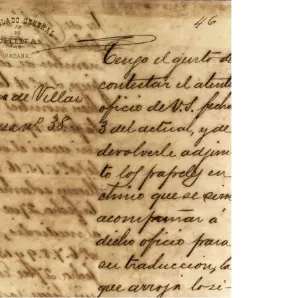 46
CONSULADO GENERAL
DE
CHINA
HABANA
de Villar
nº 38
Tengo el gusto de
contestar el atento
oficio de V.S. fecha
3 del actual, y de
devolverle adjun-
to los papeles en
chino que se sirve
acompañar á
dicho oficio para
su traduccion, la
que arroja lo si-